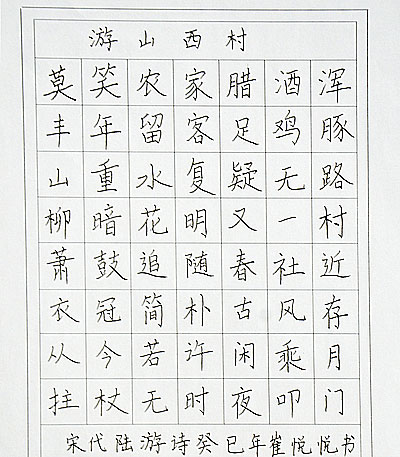 游山西村
莫笑农家腊酒浑
丰年留客足鸡豚
山重水复疑无路
柳暗花明又一村
萧鼓追随春社近
衣冠简朴古风存
从今若许闲乘月
拄杖无时夜叩门
宋代陆游诗癸巳年崔悦悦书